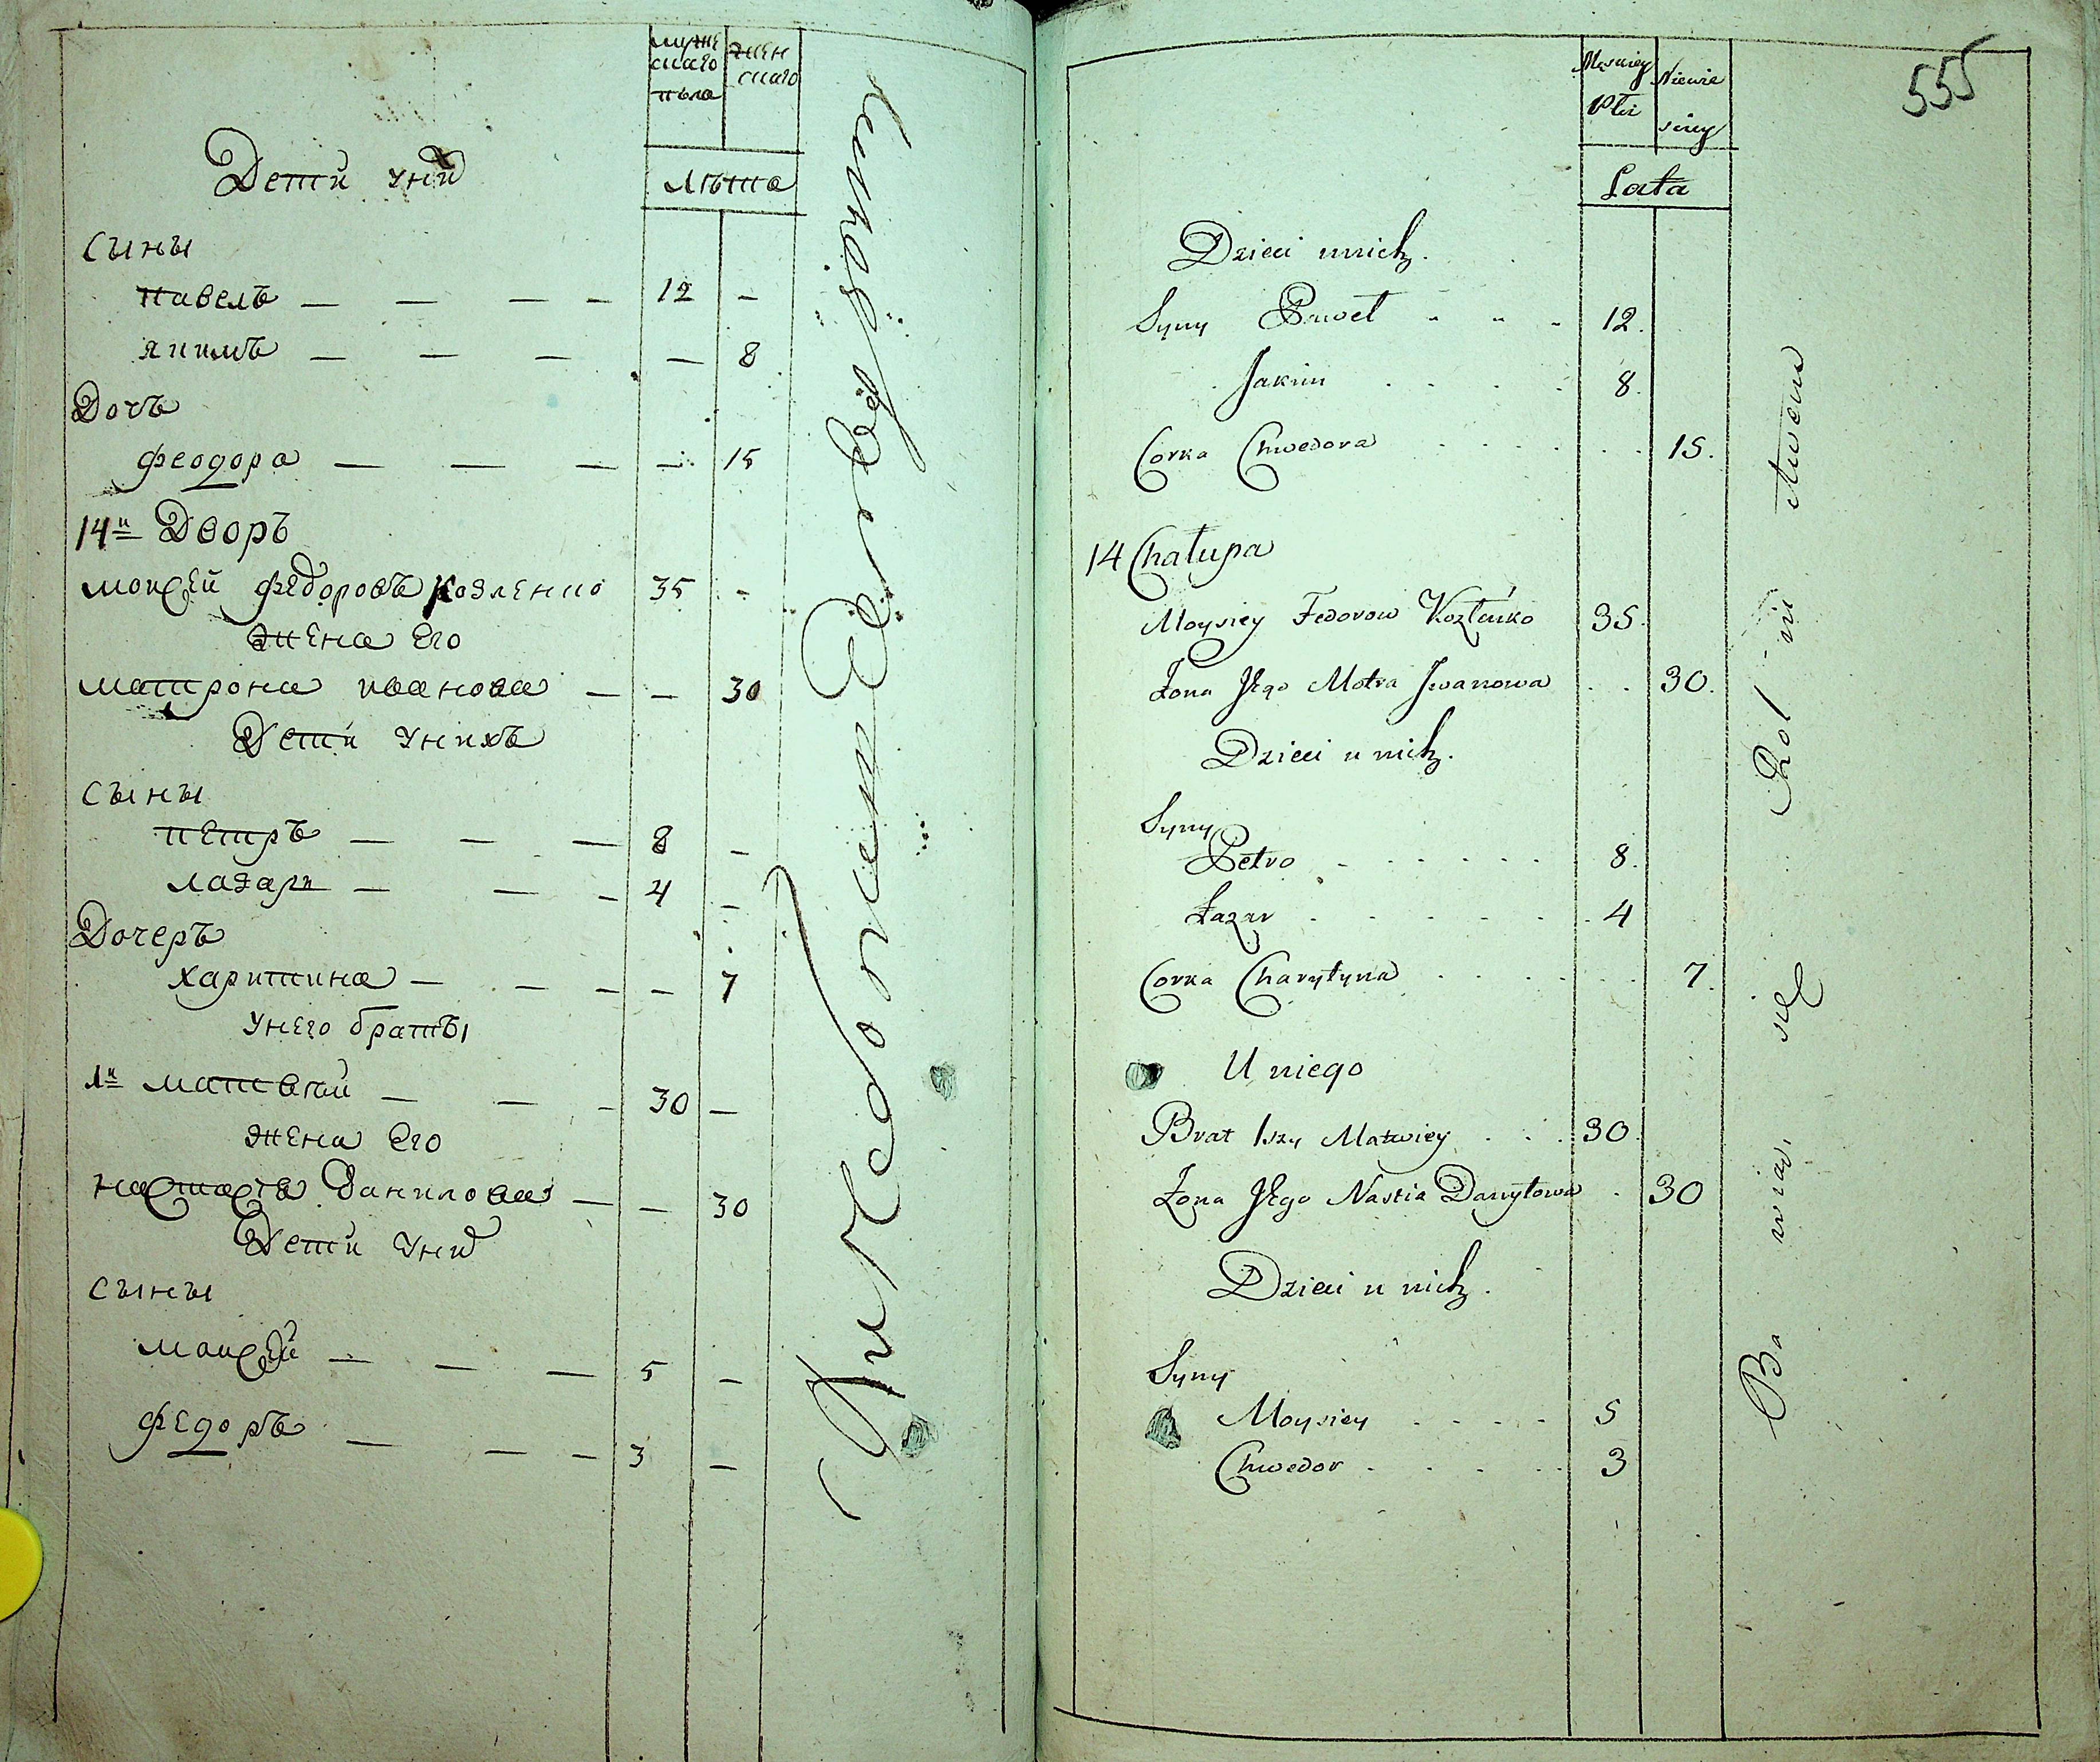 мужескаго пола
женскаго
лѣта
Дети уни
сыны
павелъ — — — — 12 —
якимъ — — — — 8
Дочъ
феодора — — — — 15
14й Дворъ
моисей федоровъ козленко 35 -
жена его
матрона иванова — — 30
Дети унихъ
сыны
петръ — — — 8 —
лазарь — — — 4 —
Дочеръ
харитина — — — — 7
унего братъı
1й матвѣй — — — 30 —
жена его
настасiя данилова — — 30
Дети уни
сыны
моисей — — — 5 —
федоръ — — — 3 —
555
Męskiey Płci
Niewieściey
Lata
Dzieci unich.
Syny Paweł 12.
Jakim 8.
Corka Chwedora 15.
14 Chałupa
Moysiey Fedorow Kozłenko 35.
Żona Jego Motra Jwanowa 30.
Dzieci u nich.
Syny
Petro 8.
Łazar 4
Corka Charytyna 7.
U niego
Brat 1szy Matwiey 30.
Żona Jego Nastia Danyłowa 30
Dzieci u nich.
Syny
Moysiey 5
Chwedor 3
Ba wią, się Rol ni ctwem